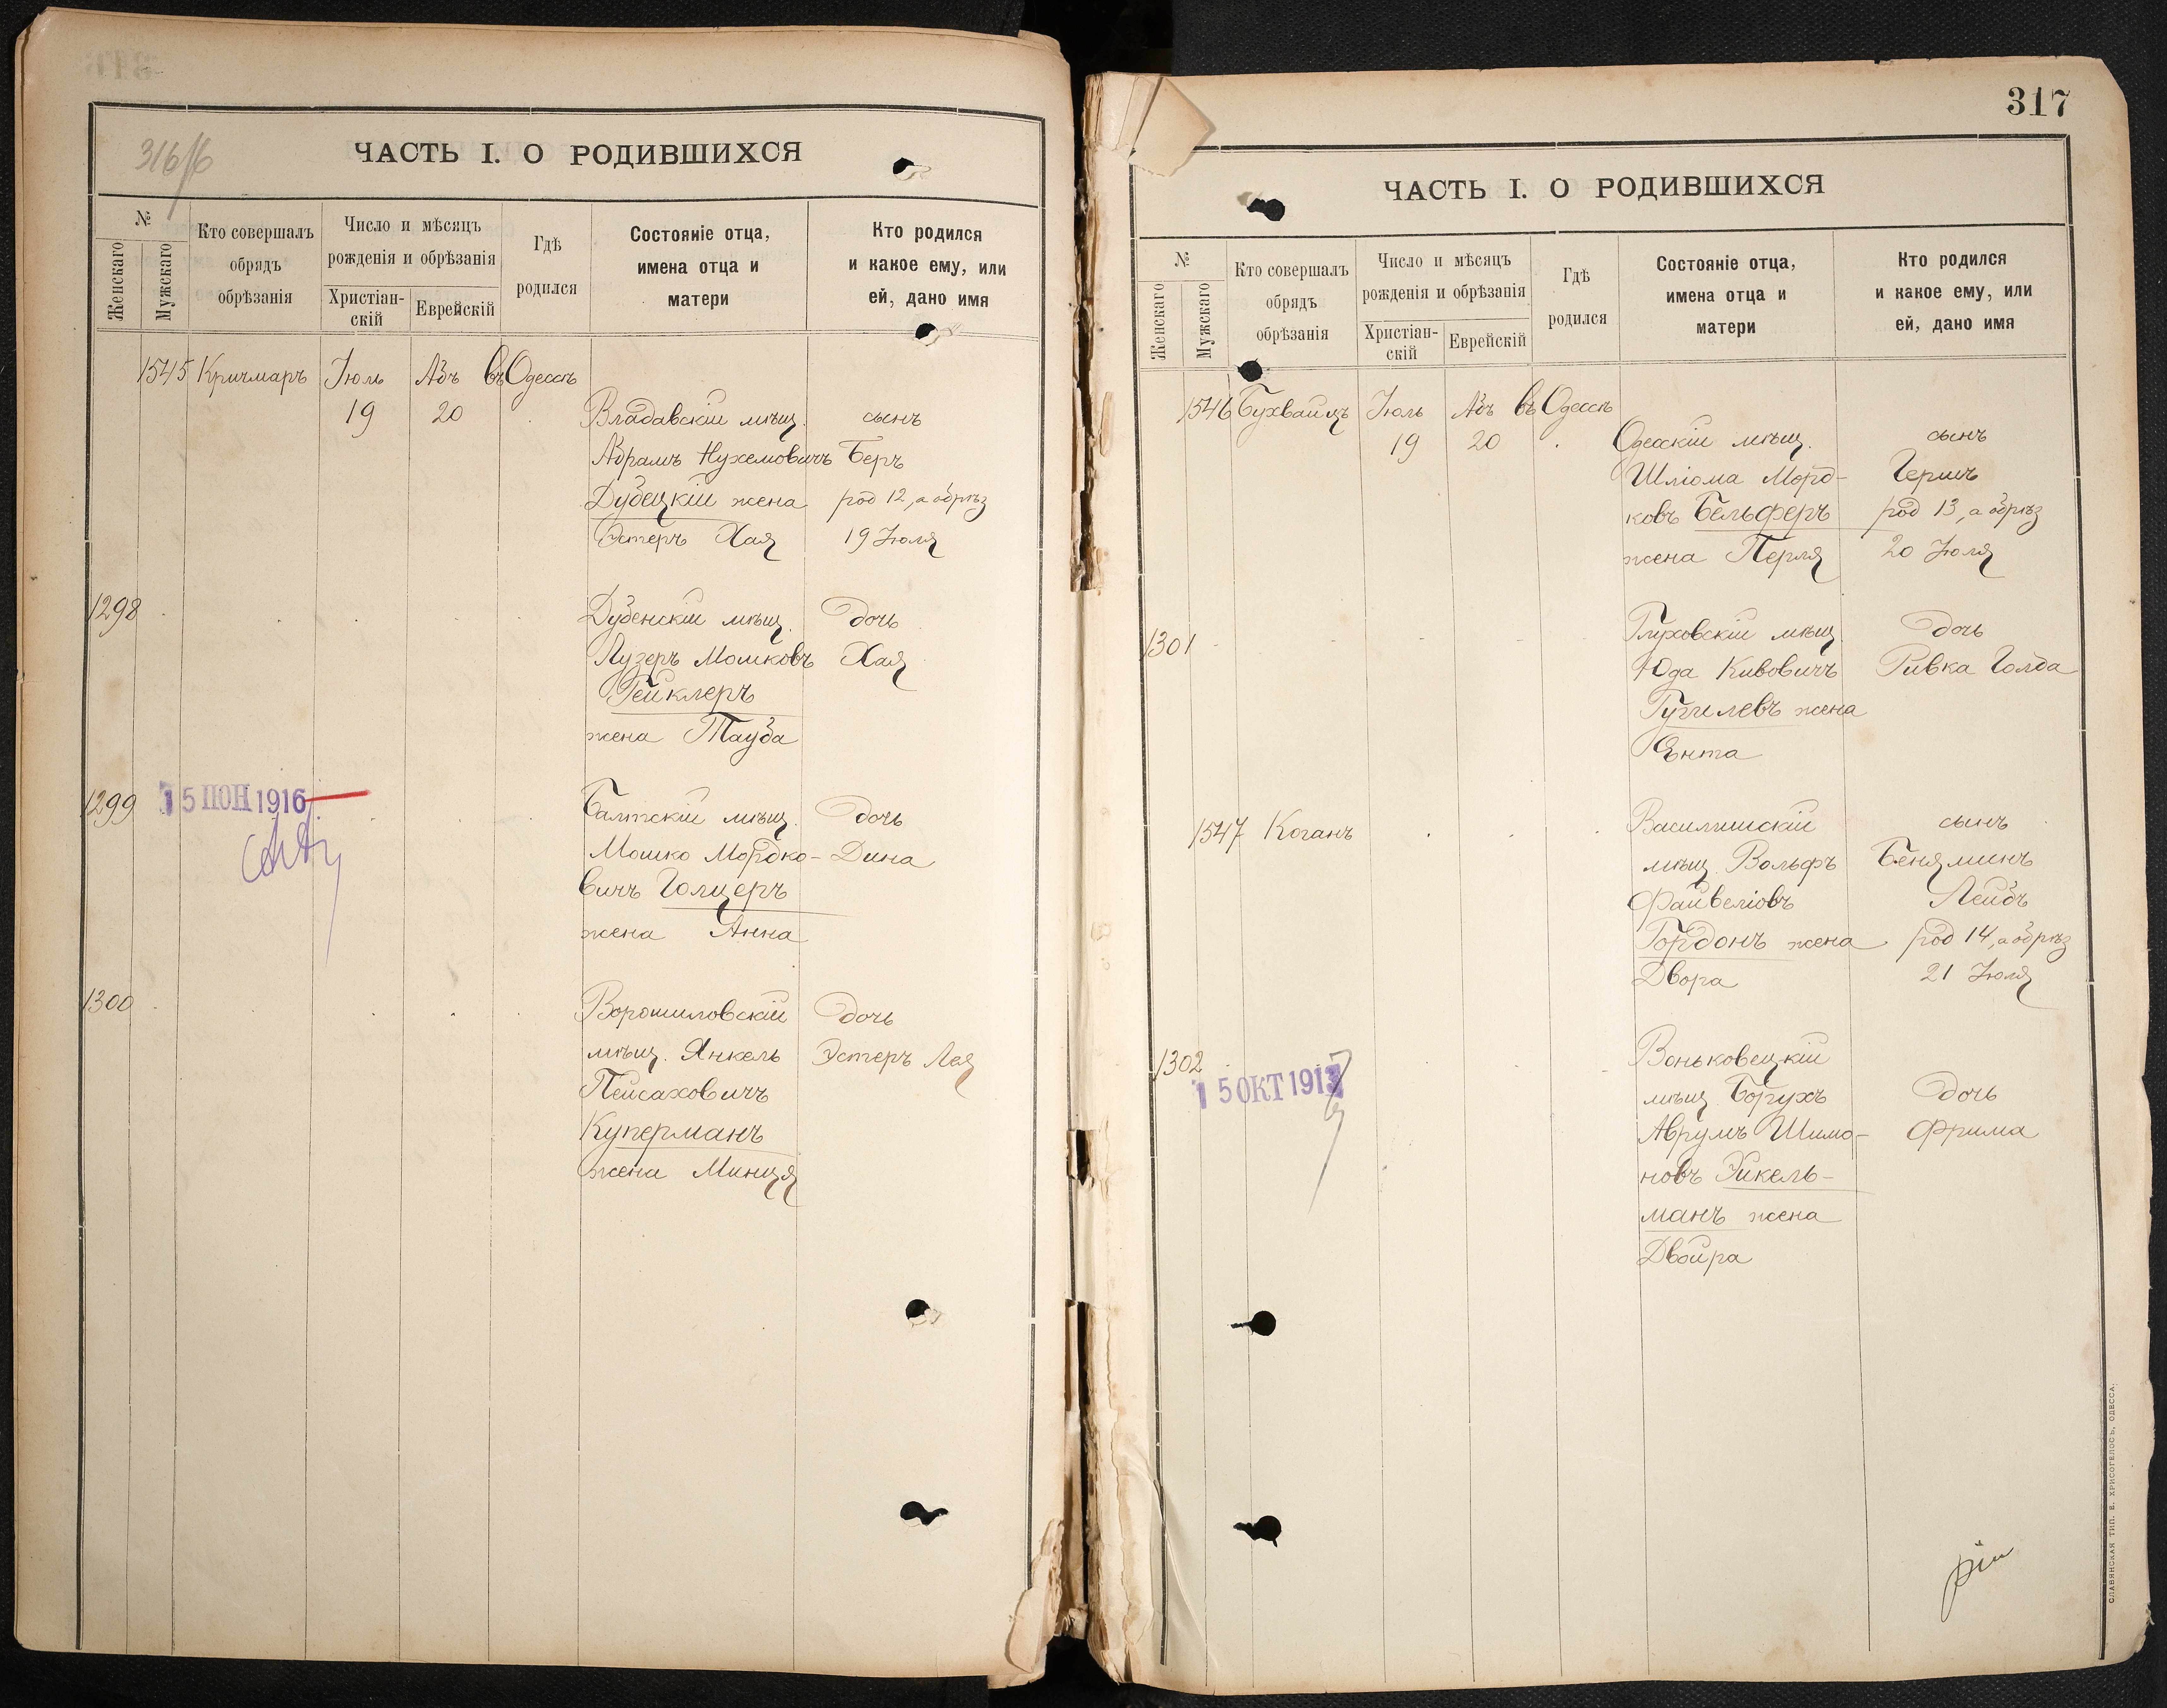 316/б
ЧАСТЬ I. О РОДИВШИХСЯ
№
Женскаго
Мужскаго
Кто совершалъ
обрядъ
обрѣзанія
Число и мѣсяцъ
рожденія и обрѣзанія
Христіан-
скій
Еврейскій
Гдѣ
родился
Состояніе отца,
имена отца и
матери
Кто родился
и какое ему, или
ей, дано имя
1545 Кричмаръ Іюль Абъ въ Одессѣ
19 20 Владавскій мѣщ. сынъ
Абрамъ Нухемовичъ Беръ
Дубецкій жена род 12, а обрѣз
Эстеръ Хая 19 Іюля
1298 Дубенскій мѣщ. дочь
Лузеръ Мошковъ Хая
Гейклеръ
жена Тауба
1299 15 ІЮН 1916 Балтскій мѣщ. дочь
Мошко Мордко- Дина
вичъ Голцеръ
жена Анна
1300 Ворошиловскій дочь
мѣщ. Янкель Эстеръ Лея
Пейсаховичъ
Куперманъ
жена Минця
317
ЧАСТЬ I. О РОДИВШИХСЯ
№
Женскаго
Мужскаго
Кто совершалъ
обрядъ
обрѣзанія
Число и мѣсяцъ
рожденія и обрѣзанія
Христіан-
скій
Еврейскій
Гдѣ
родился
Состояніе отца,
имена отца и
матери
Кто родился
и какое ему, или
ей, дано имя
1546 Бухвайцъ Іюль Абъ въ Одессѣ
19 20 Одесскій мѣщ. сынъ
Шліома Морд- Гершъ
ковъ Бельферъ род 13, а обрѣз
жена Перля 20 Іюля
1301 Глуховскій мѣщ. дочь
Юда Кивовичъ Ривка Голда
Гугилевъ жена
Ента
1547 Коганъ Василишскій сынъ
мѣщ. Вольфъ Беняминъ
Файвеліовъ Лейбъ
Гордонъ жена род 14, а обрѣз
Двора 21 Іюля
1302 Воньковецкій
15 ОКТ 1913 мѣщ. Борухъ дочь
Аврумъ Шимо- Фрима
новъ Эйкель-
манъ жена
Двойра
СЛАВЯНСКАЯ ТИП. Е. ХРИСОГЕЛОСЪ, ОДЕССА.